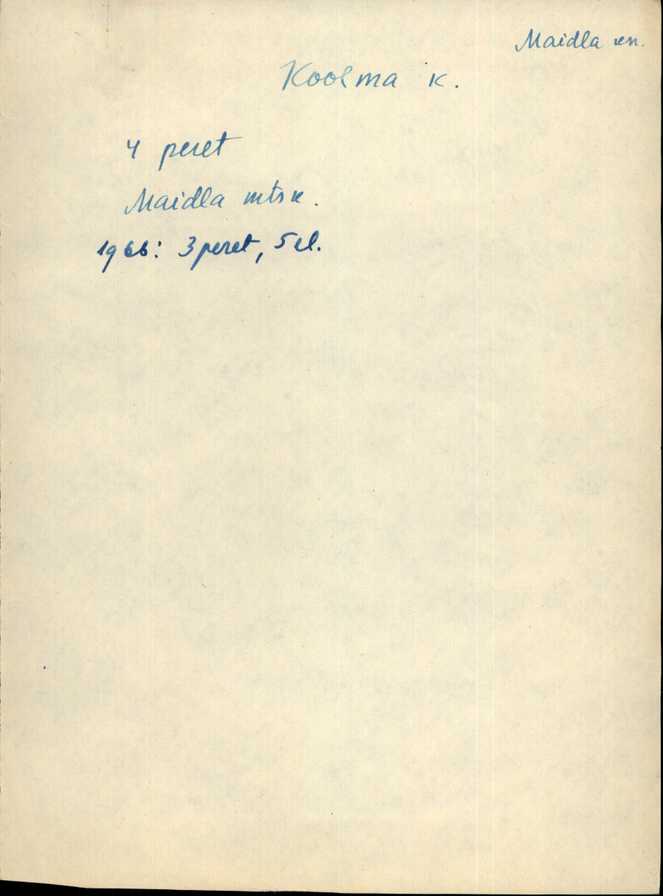 Maidla kn.
Koolma k.
4 peret
Maidla mtsk.
1966: 3 peret, 5 el.